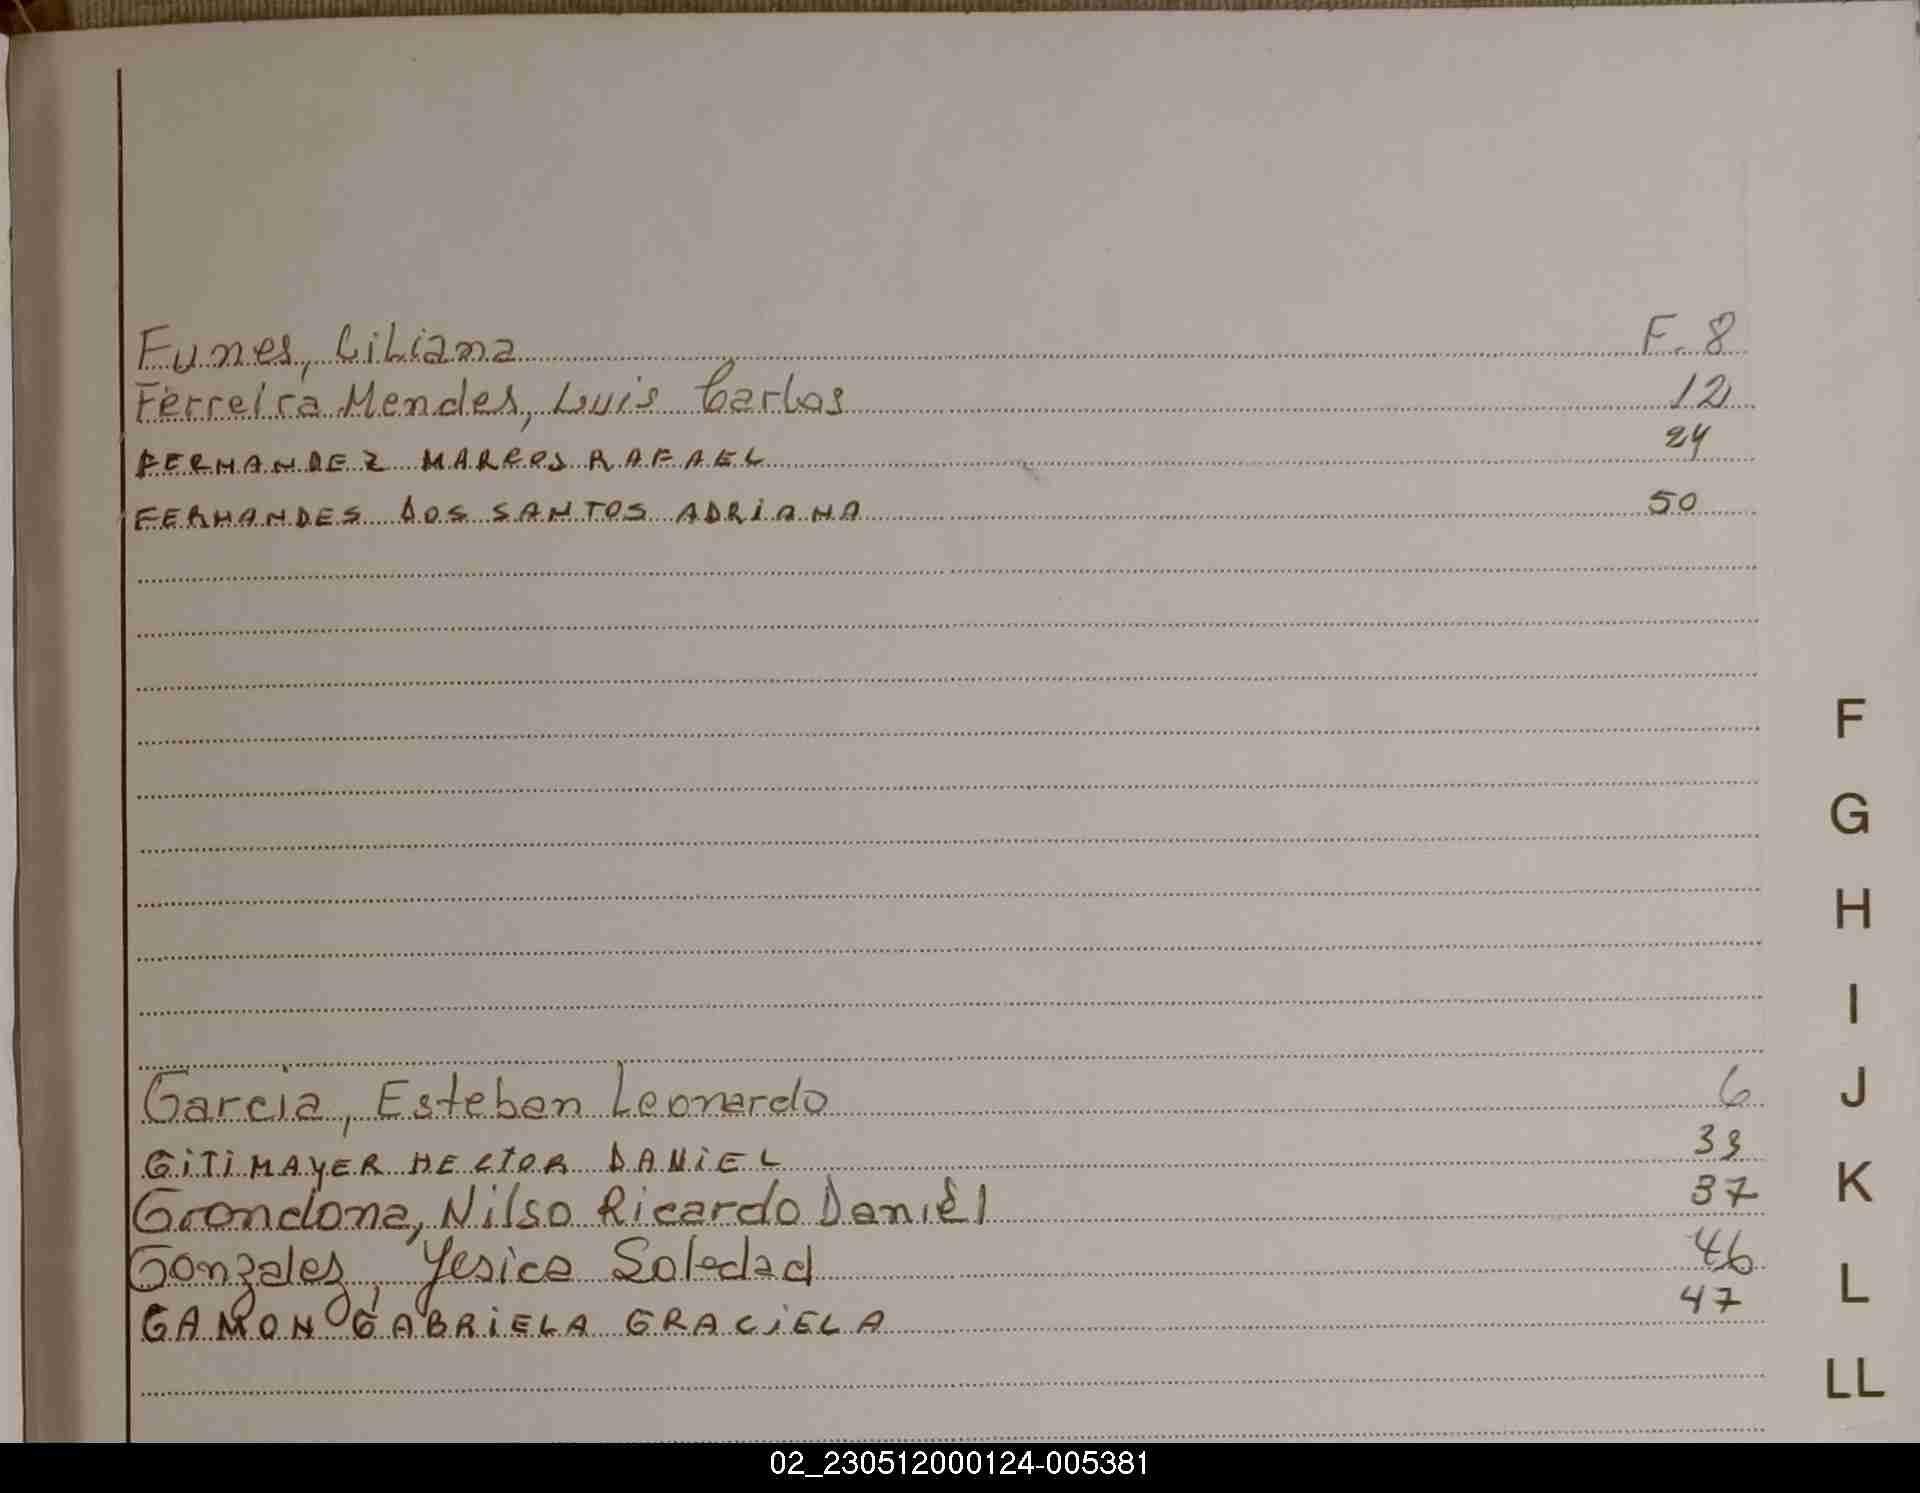 Funes, Liliana F. 8
Ferreira Mendes, Luis Carlos 12
FERNANDEZ MARCOS RAFAEL 24
FERNANDES DOS SANTOS ADRIANA 50
F
G
H
I
Garcia, Esteban Leonardo 6
J
GITIMAYER HECTOR DANIEL 33
Grondona, Nilso Ricardo Daniel 37
K
Gonzalez, Yesica Soledad 46
GAMON GABRIELA GRACIELA 47
L
LL
02_230512000124-005381